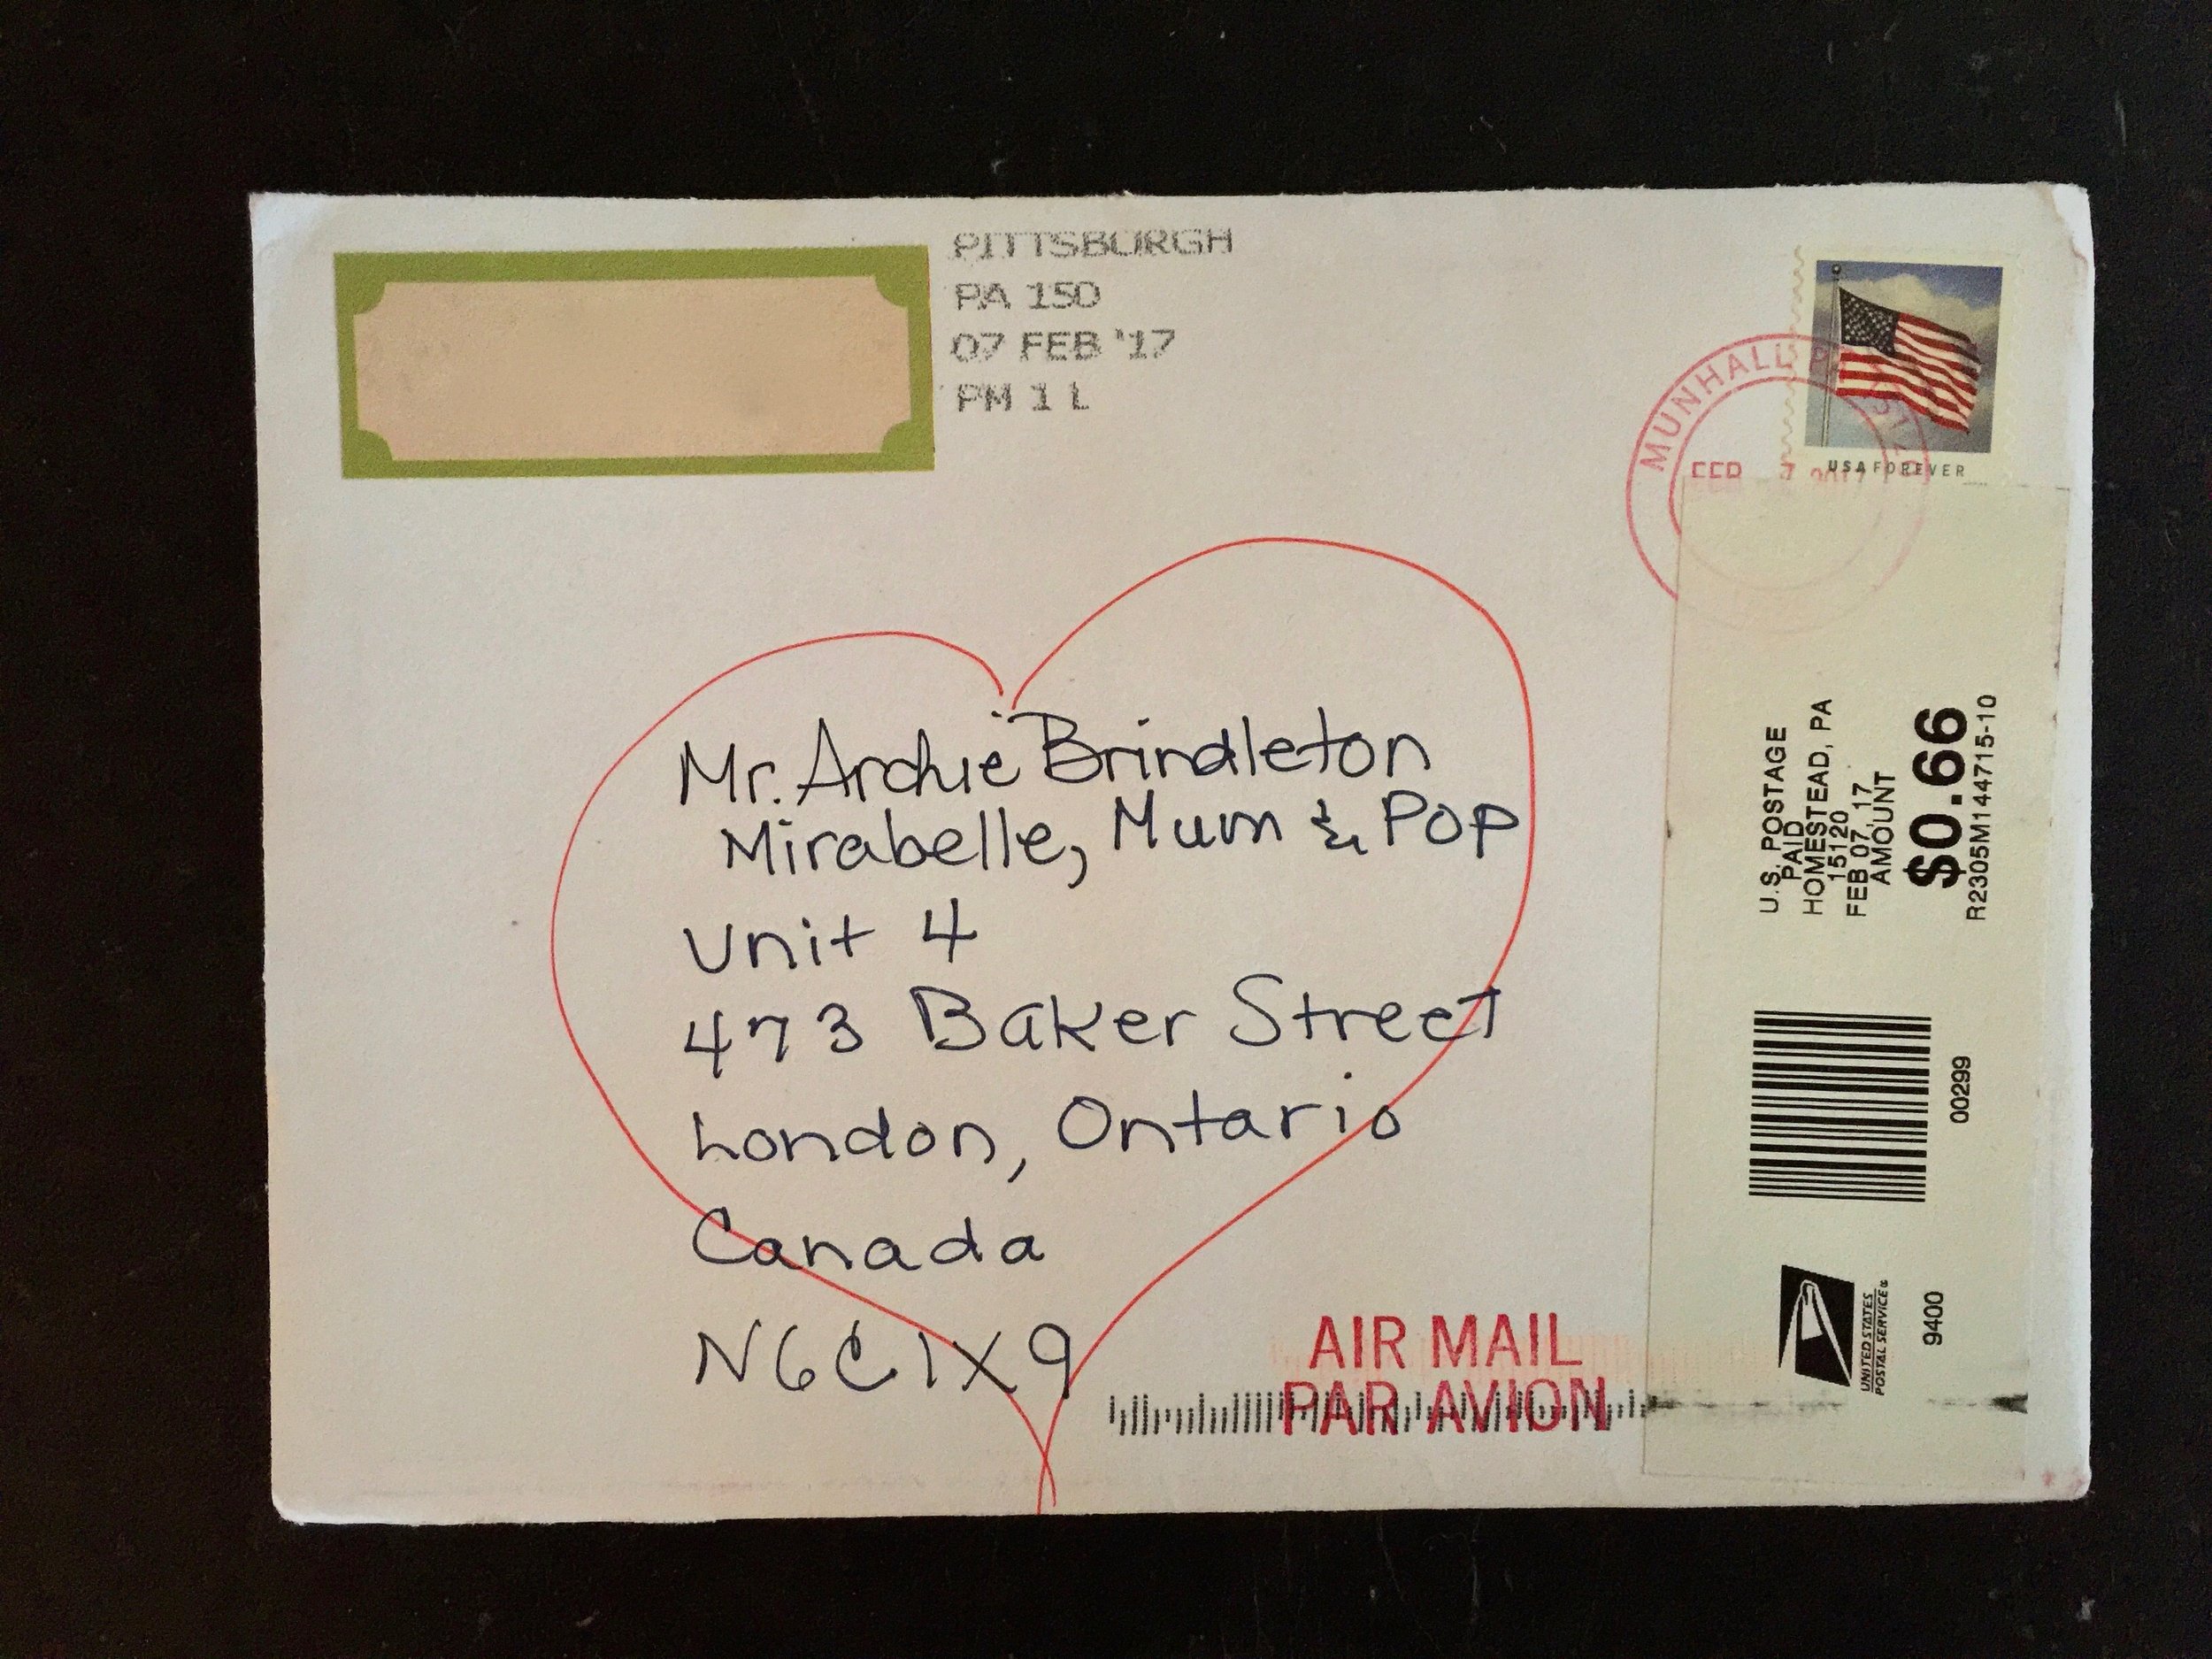 PITTSBURGH
PA 150
07 FEB '17
PM 1 L
USA FOREVER
MUNHALL
FEB 7 2017
Mr. Archie Brindleton
Mirabelle, Mum & Pop
Unit 4
473 Baker Street
London, Ontario
Canada
N6C1X9
AIR MAIL
PAR AVION
U.S. POSTAGE
PAID
HOMESTEAD, PA
15120
FEB 07, 17
AMOUNT
$0.66
R2305M144715-10
00299
UNITED STATES
POSTAL SERVICE®
9400